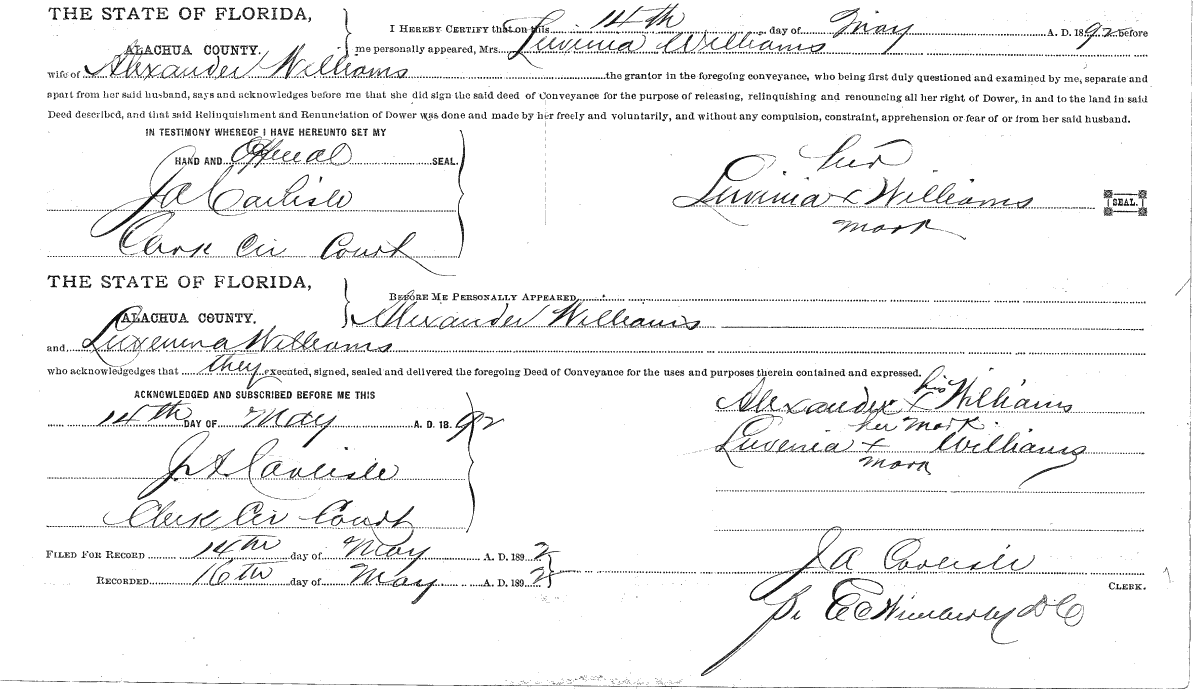 THE STATE OF FLORIDA,
ALACHUA COUNTY.
I HEREBY CERTIFY that on this 14th day of May A. D. 1892 before
me personally appeared, Mrs. Luvinia Williams
wife of Alexander Williams the grantor in the foregoing conveyance, who being first duly questioned and examined by me, separate and
apart from her said husband, says and acknowledges before me that she did sign the said deed of Conveyance for the purpose of releasing, relinquishing and renouncing all her right of Dower, in and to the land in said
Deed described, and that said Relinquishment and Renunciation of Dower was done and made by her freely and voluntarily, and without any compulsion, constraint, apprehension or fear of or from her said husband.
IN TESTIMONY WHEREOF I HAVE HEREUNTO SET MY
HAND AND Official SEAL.
J A Carlisle
Clerk Cir Court
her
Luvinia x Williams
mark
SEAL.
THE STATE OF FLORIDA,
ALACHUA COUNTY.
BEFORE ME PERSONALLY APPEARED
Alexander Williams
and Luvenina Williams
who acknowledges that they executed, signed, sealed and delivered the foregoing Deed of Conveyance for the uses and purposes therein contained and expressed.
ACKNOWLEDGED AND SUBSCRIBED BEFORE ME THIS
14th DAY OF May A. D. 1892
J A Carlisle
Clerk Cir Court
his
Alexander x Williams
her mark.
Luvenia x Williams
mark
FILED FOR RECORD 14th day of May A. D. 1892
RECORDED 16th day of May A. D. 1892
J A Carlisle
CLERK.
E C Wimberly D C